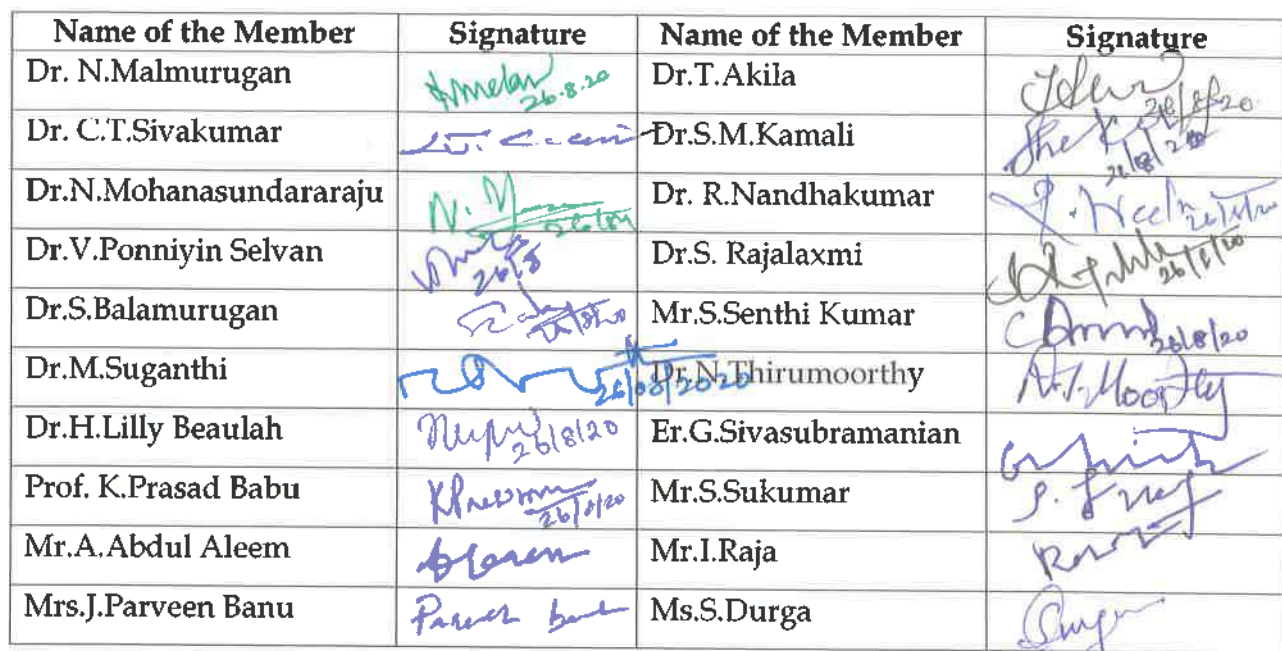 Name of the Member Signature Name of the Member Signature
Dr. N.Malmurugan 26.8.20 Dr.T.Akila 26/8/20
Dr. C.T.Sivakumar Dr.S.M.Kamali 26/8/20
Dr.N.Mohanasundararaju N. Dr. R.Nandhakumar
Dr.V.Ponniyin Selvan 26/8 Dr.S. Rajalaxmi 26/8/20
Dr.S.Balamurugan 26/8/20 Mr.S.Senthi Kumar 26/8/20
Dr.M.Suganthi 26/08/2020 Dr.N.Thirumoorthy N.T.Moorthy
Dr.H.Lilly Beaulah 26/8/20 Er.G.Sivasubramanian
Prof. K.Prasad Babu 26/8/20 Mr.S.Sukumar S.
Mr.A.Abdul Aleem Mr.I.Raja
Mrs.J.Parveen Banu Ms.S.Durga